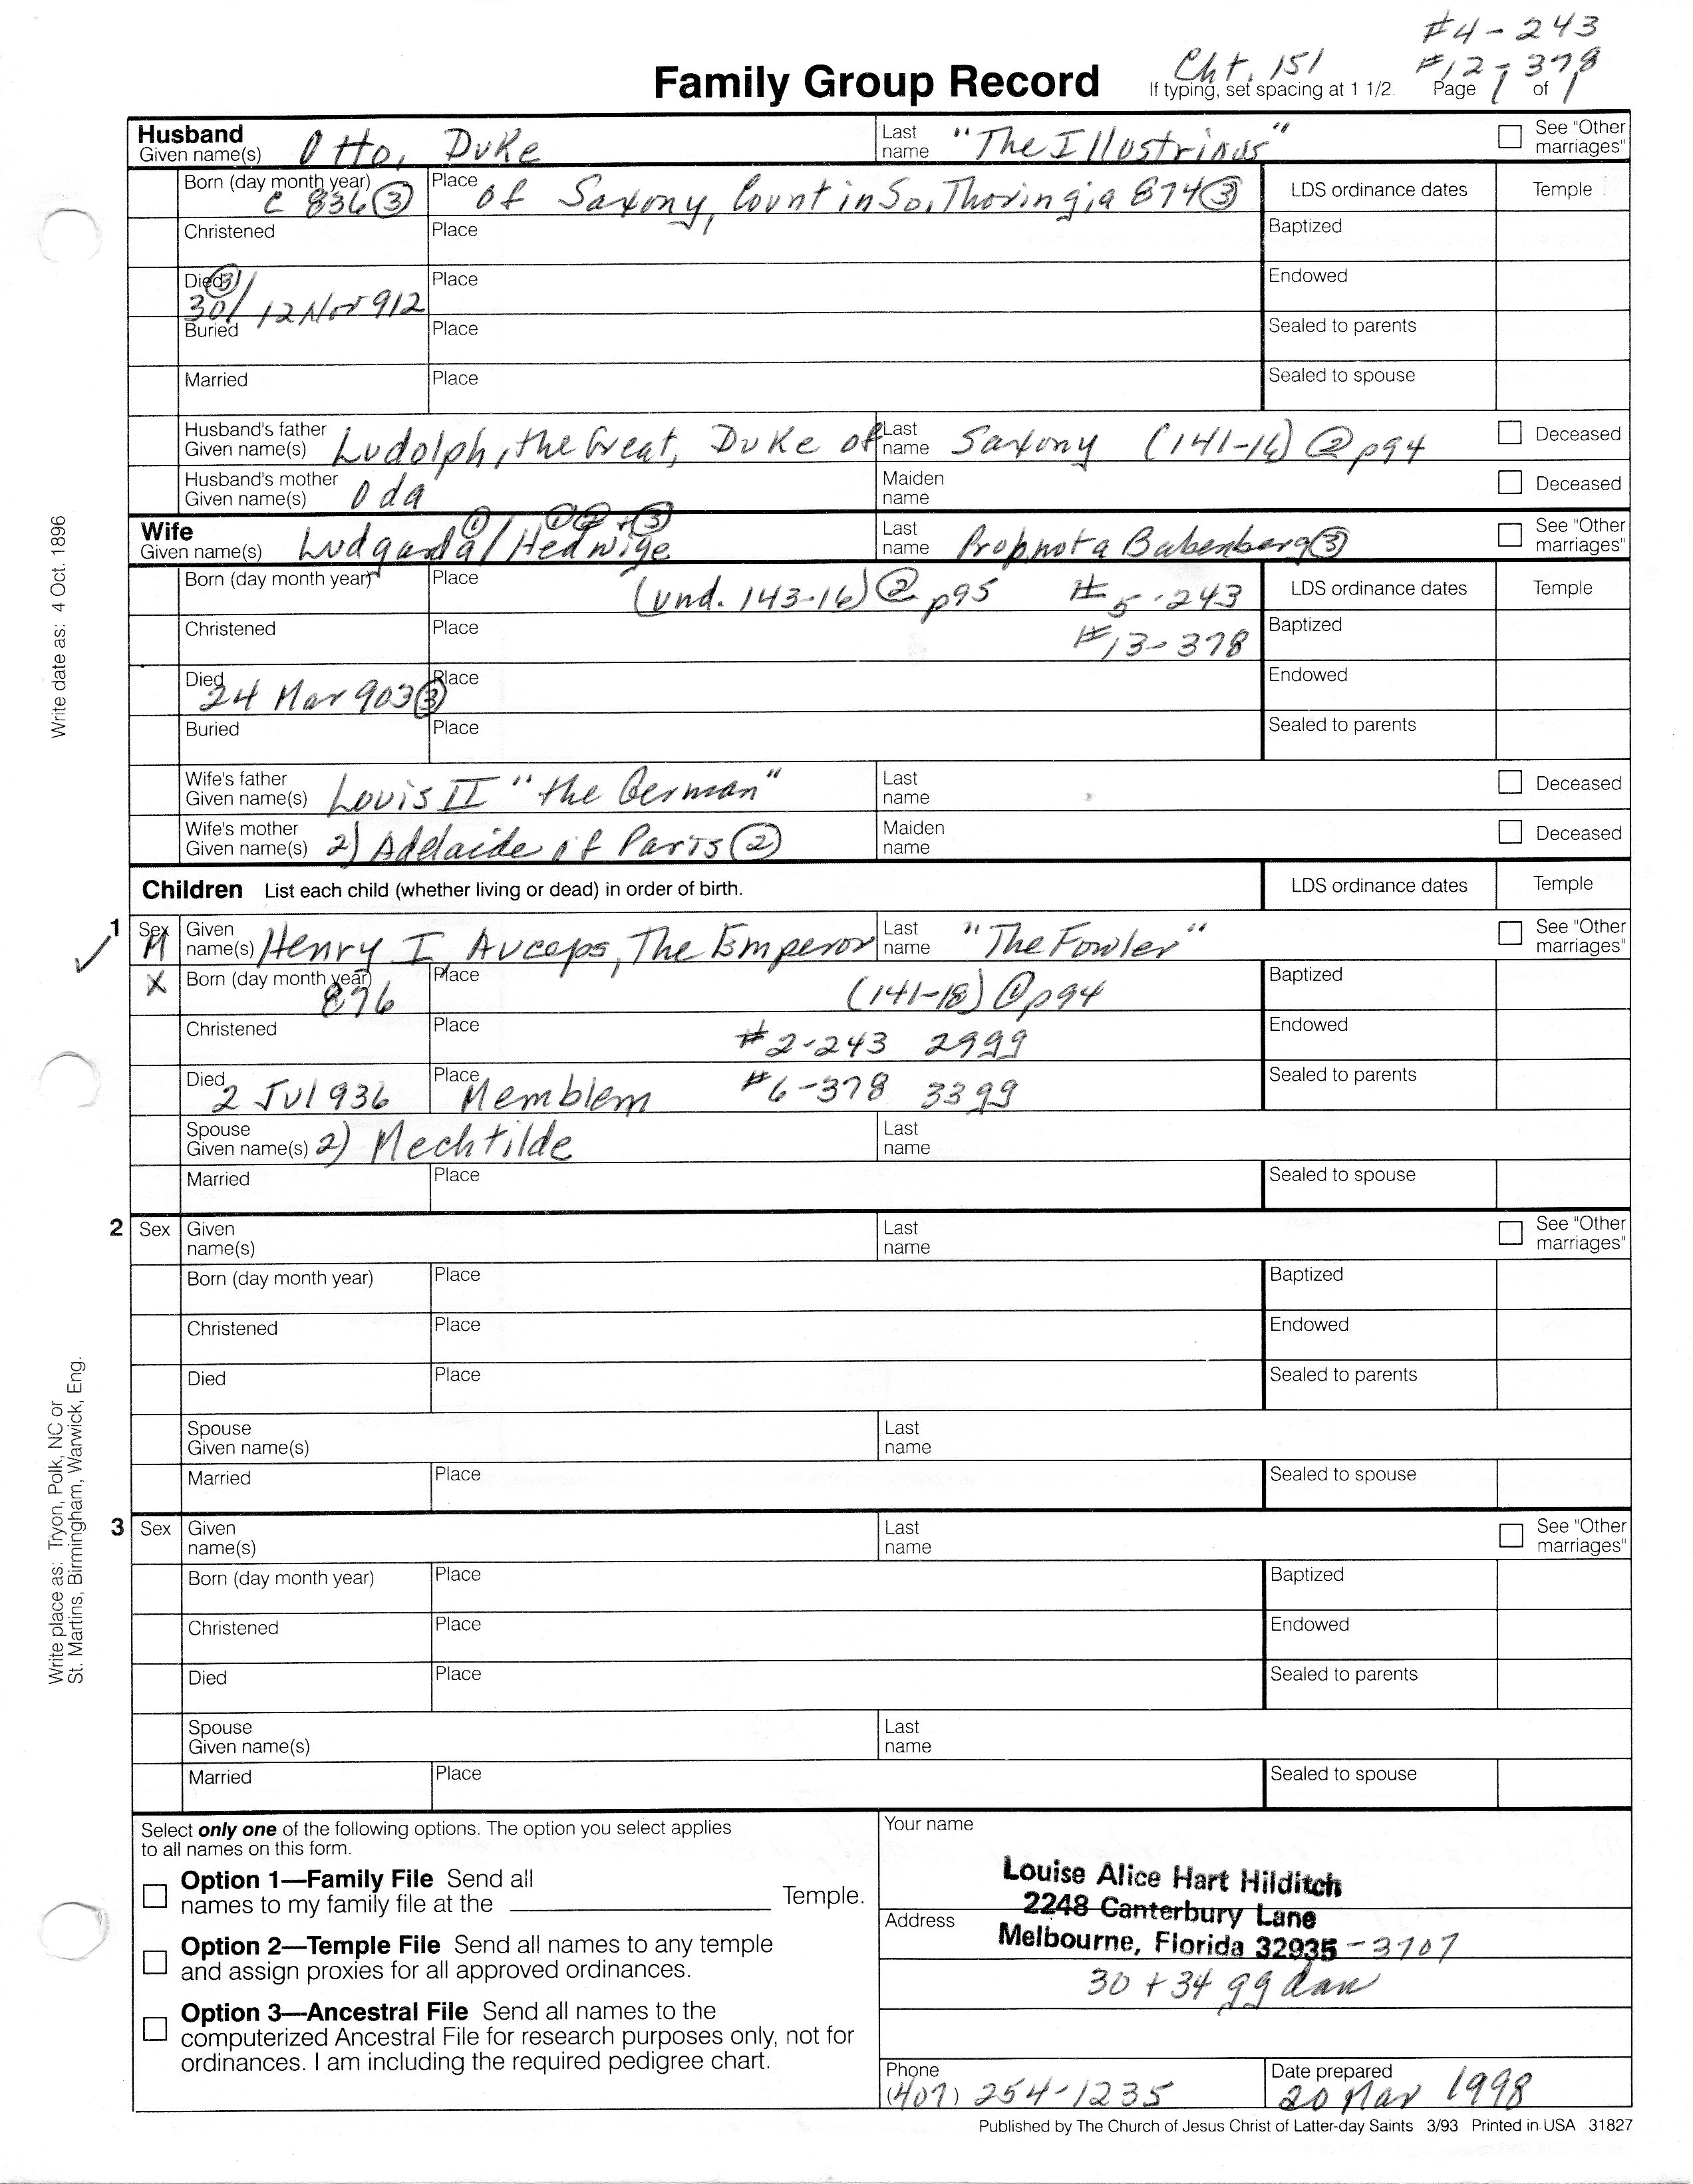 #4-243
Cht. 151 #12-378
Family Group Record If typing, set spacing at 1 1/2. Page 1 of 1
Husband
Given name(s) Otto, Duke Last name "The Illustrious" See "Other marriages"
Born (day month year) c 836 ③ Place of Saxony, Count in So. Thoringia 874 ③ LDS ordinance dates Temple
Christened Place Baptized
Died ③ 30/12 Nov 912 Place Endowed
Buried Place Sealed to parents
Married Place Sealed to spouse
Husband's father Given name(s) Ludolph, the Great, Duke of Last name Saxony (141-16) ② p94 Deceased
Husband's mother Given name(s) Oda Maiden name Deceased
Wife
Given name(s) Ludganda ① / Hedwige ① ② + ③ Last name Prob not a Babenberg ③ See "Other marriages"
Born (day month year) Place (und. 143-16) ② p95 #5-243 LDS ordinance dates Temple
Christened Place #13-378 Baptized
Died 24 Mar 903 ③ Place Endowed
Buried Place Sealed to parents
Wife's father Given name(s) Louis II "the German" Last name Deceased
Wife's mother Given name(s) 2) Adelaide of Paris ② Maiden name Deceased
Children List each child (whether living or dead) in order of birth. LDS ordinance dates Temple
1 Sex M Given name(s) Henry I, Auceps, The Emperor Last name "The Fowler" See "Other marriages"
X Born (day month year) 876 Place (141-18) ① p94 Baptized
Christened Place #2-243 29gg Endowed
Died 2 Jul 936 Place Memblem #6-378 33gg Sealed to parents
Spouse Given name(s) 2) Mechtilde Last name
Married Place Sealed to spouse
2 Sex Given name(s) Last name See "Other marriages"
Born (day month year) Place Baptized
Christened Place Endowed
Died Place Sealed to parents
Spouse Given name(s) Last name
Married Place Sealed to spouse
3 Sex Given name(s) Last name See "Other marriages"
Born (day month year) Place Baptized
Christened Place Endowed
Died Place Sealed to parents
Spouse Given name(s) Last name
Married Place Sealed to spouse
Write date as: 4 Oct. 1896
Write place as: Tryon, Polk, NC or
St. Martins, Birmingham, Warwick, Eng.
Select only one of the following options. The option you select applies
to all names on this form.
Option 1—Family File Send all
names to my family file at the Temple.
Option 2—Temple File Send all names to any temple
and assign proxies for all approved ordinances.
Option 3—Ancestral File Send all names to the
computerized Ancestral File for research purposes only, not for
ordinances. I am including the required pedigree chart.
Your name
Louise Alice Hart Hilditch
2248 Canterbury Lane
Address
Melbourne, Florida 32935-3707
30 + 34 gg dau
Phone (407) 254-1235 Date prepared 20 Mar 1998
Published by The Church of Jesus Christ of Latter-day Saints 3/93 Printed in USA 31827